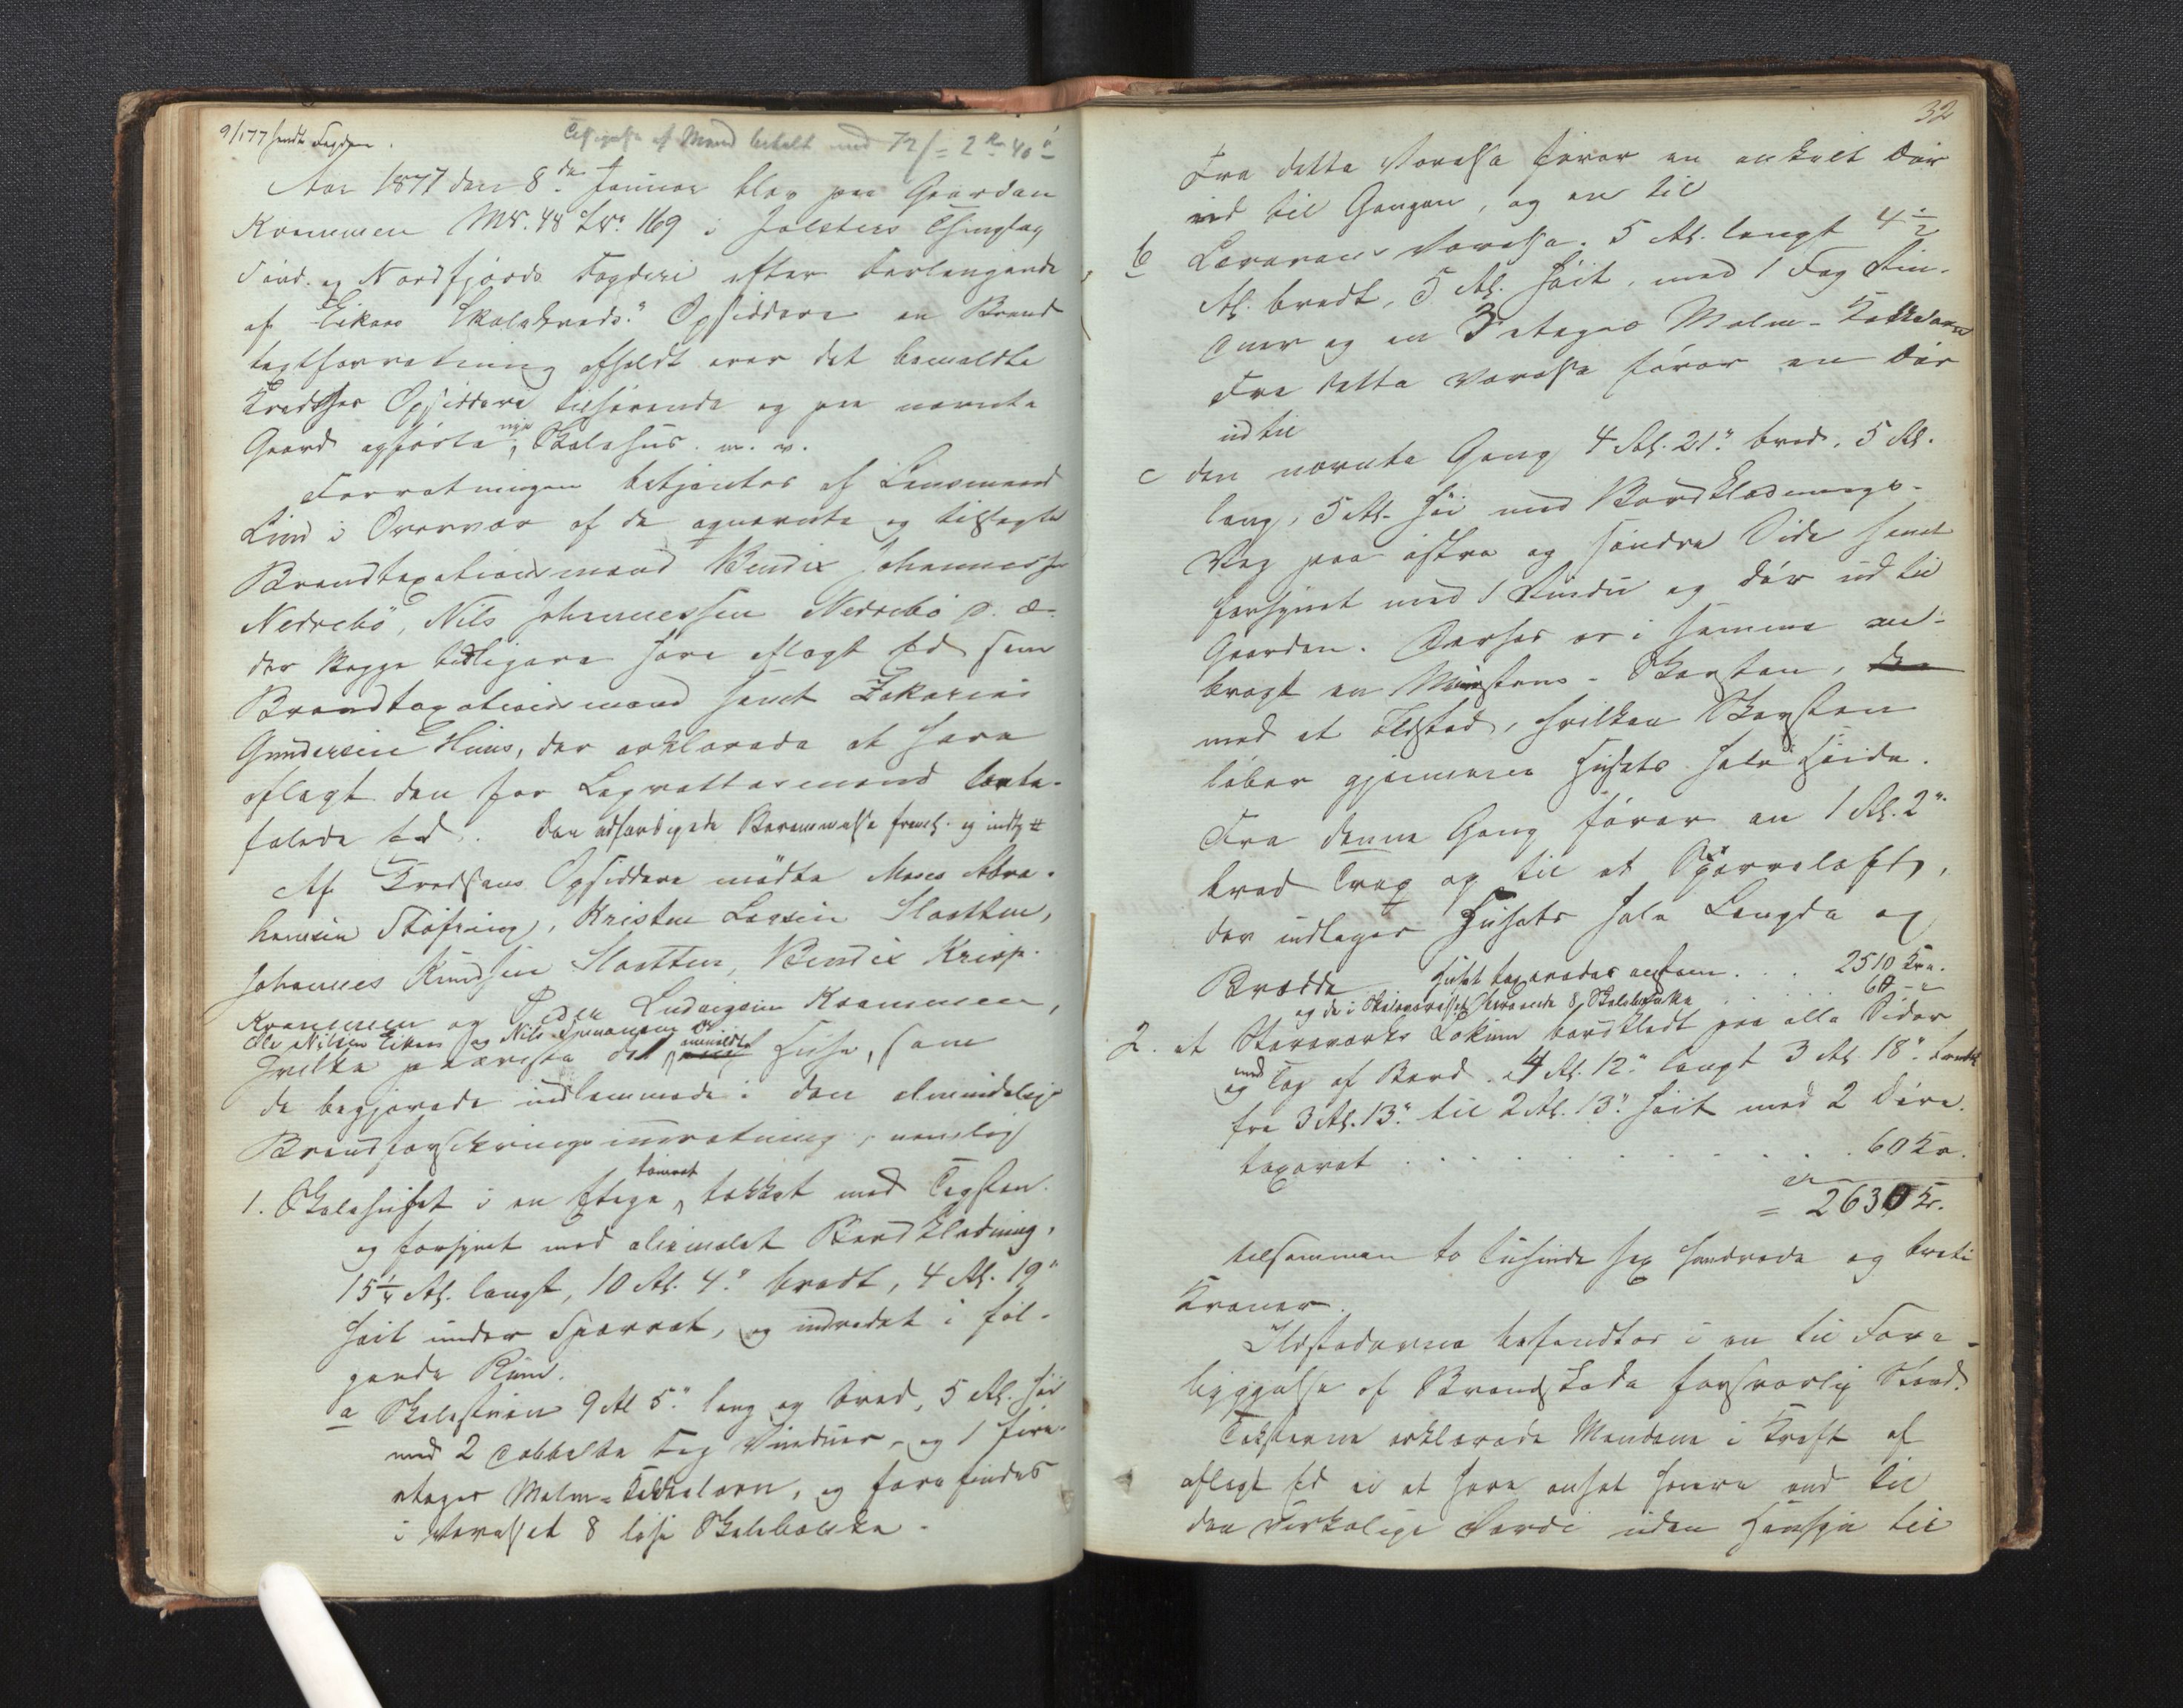 9/1 77 sendt Fogden.
Tilsigelse af Mænd betalt med 72 s = 2 Kr 40 ø
Aar 1877 den 8de Januar blev paa Gaarden
Kvammen M.N. 48 L.N. 169 i Jølsters Thinglag
Sönd- og Nordfjords Fogderi efter Forlangende
af Eikaas Skolekreds's Opsiddere en Brand-
taxtforretning afholdt over det bemeldte
Kredses Opsiddere tilhörende og paa nævnte
Gaard opförte nye Skolehus m. v.
Forretningen betjentes af Lensmand
Lind i Overvær af de opnævnte og tilsagte
Brandtaxationsmænd Bendix Johannessen
Nedrebö, Nils Johannessen Nedrebö p. æ.
der begge tidligere have aflagt Ed som
Brandtaxationsmænd samt Zakarias
Gundersen Huus, der erklærede at have
aflagt den for Lagrettesmænd befa-
lede Ed. Den udfærdigede Berammelse freml. og indtg #
Af Kredsens Opsiddere mödte Moses Abra-
hamsen Stöfring, Kristen Larsen Slaatten,
Johannes Knudsen Slaatten, Bendix Krisp.
Kvammen og Peder Ludvigsen Kvammen,
Ole Nilsen Eikaas og Nils
hvilke paaviste de anmeldte Huse, som
de begjærede indlemmede i den almindelige
Brandforsikringsindretning, nemlig
1. Skolehuset i en Etage, tömret tækket med Tagsten
og forsynet med oliemalet Bordklædning,
15 1/4 Al. langt, 10 Al. 4" bredt, 4 Al. 19"
höit under Sparret, og indredet i föl-
gende Rum.
a Skolestuen 9 Al 5" lang og bred, 5 Al. höi
med 2 dobbelte Fag Vinduer og 1 fire-
etages Malm-Kakkelovn, og forefindes
i Værelset 8 löse Skolebænke.
32
Fra dette Værelse förer en enkelt Dör
ud til Gangen, og en til
b Lærerens Værelse. 5 Al. langt 4 1/2
Al. bredt, 5 Al. höit, med 1 Fag Vin-
duer og en 3 etages Malm-Kakkelovn
Fra dette Værelse förer en Dör
ud til
c den nævnte Gang 4 Al. 21" bred, 5 Al.
lang, 5 Al. höi med Bordklædnings-
Væg paa östre og söndre Side samt
forsynet med 1 Vindu og Dör ud til
Gaarden. Derhos er i samme an-
bragt en Murstens-Skorsten,
med et Ildsted, hvilken Skorsten
löber gjennem Husets hele Höide.
Fra denne Gang förer en 1 Al. 2"
bred Trap op til et Sperreloft,
der indtager Husets hele Længde og
Bredde. Huset taxeredes . . . 2510 Kr.
og de i Skoleværelset værende 8 Skolebænke . . . 60 - "
2. et Stavværks Lokum bordklædt paa alle Sider
og med Tag af Bord. 4 Al. 12" langt 3 Al. 18" bredt
fra 3 Al. 13" til 2 Al. 13" höit med 2 Döre.
taxeret . . . . . . . . 60 Kr.
= 2630 Kr.
tilsammen to tusinde sex hundrede og treti
Kroner.
Ildstederne befandtes i en til Fore-
byggelse af Brandskade forsvarlig Stand.
Taksterne erklærede Mændene i Kraft af
aflagt Ed ei at have ansat höiere end til
den virkelige Værdi uden Hensyn til